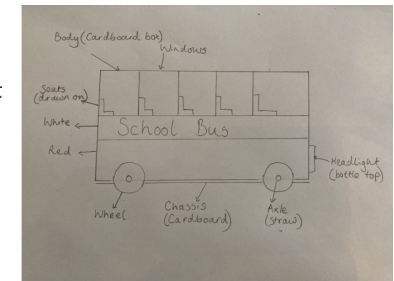 Body (Cardboard box)
Windows
Seats
(drawn on)
White
School Bus
Red
Headlight
(bottle top)
Wheel
Chassis
(Cardboard)
Axle
(Straw)